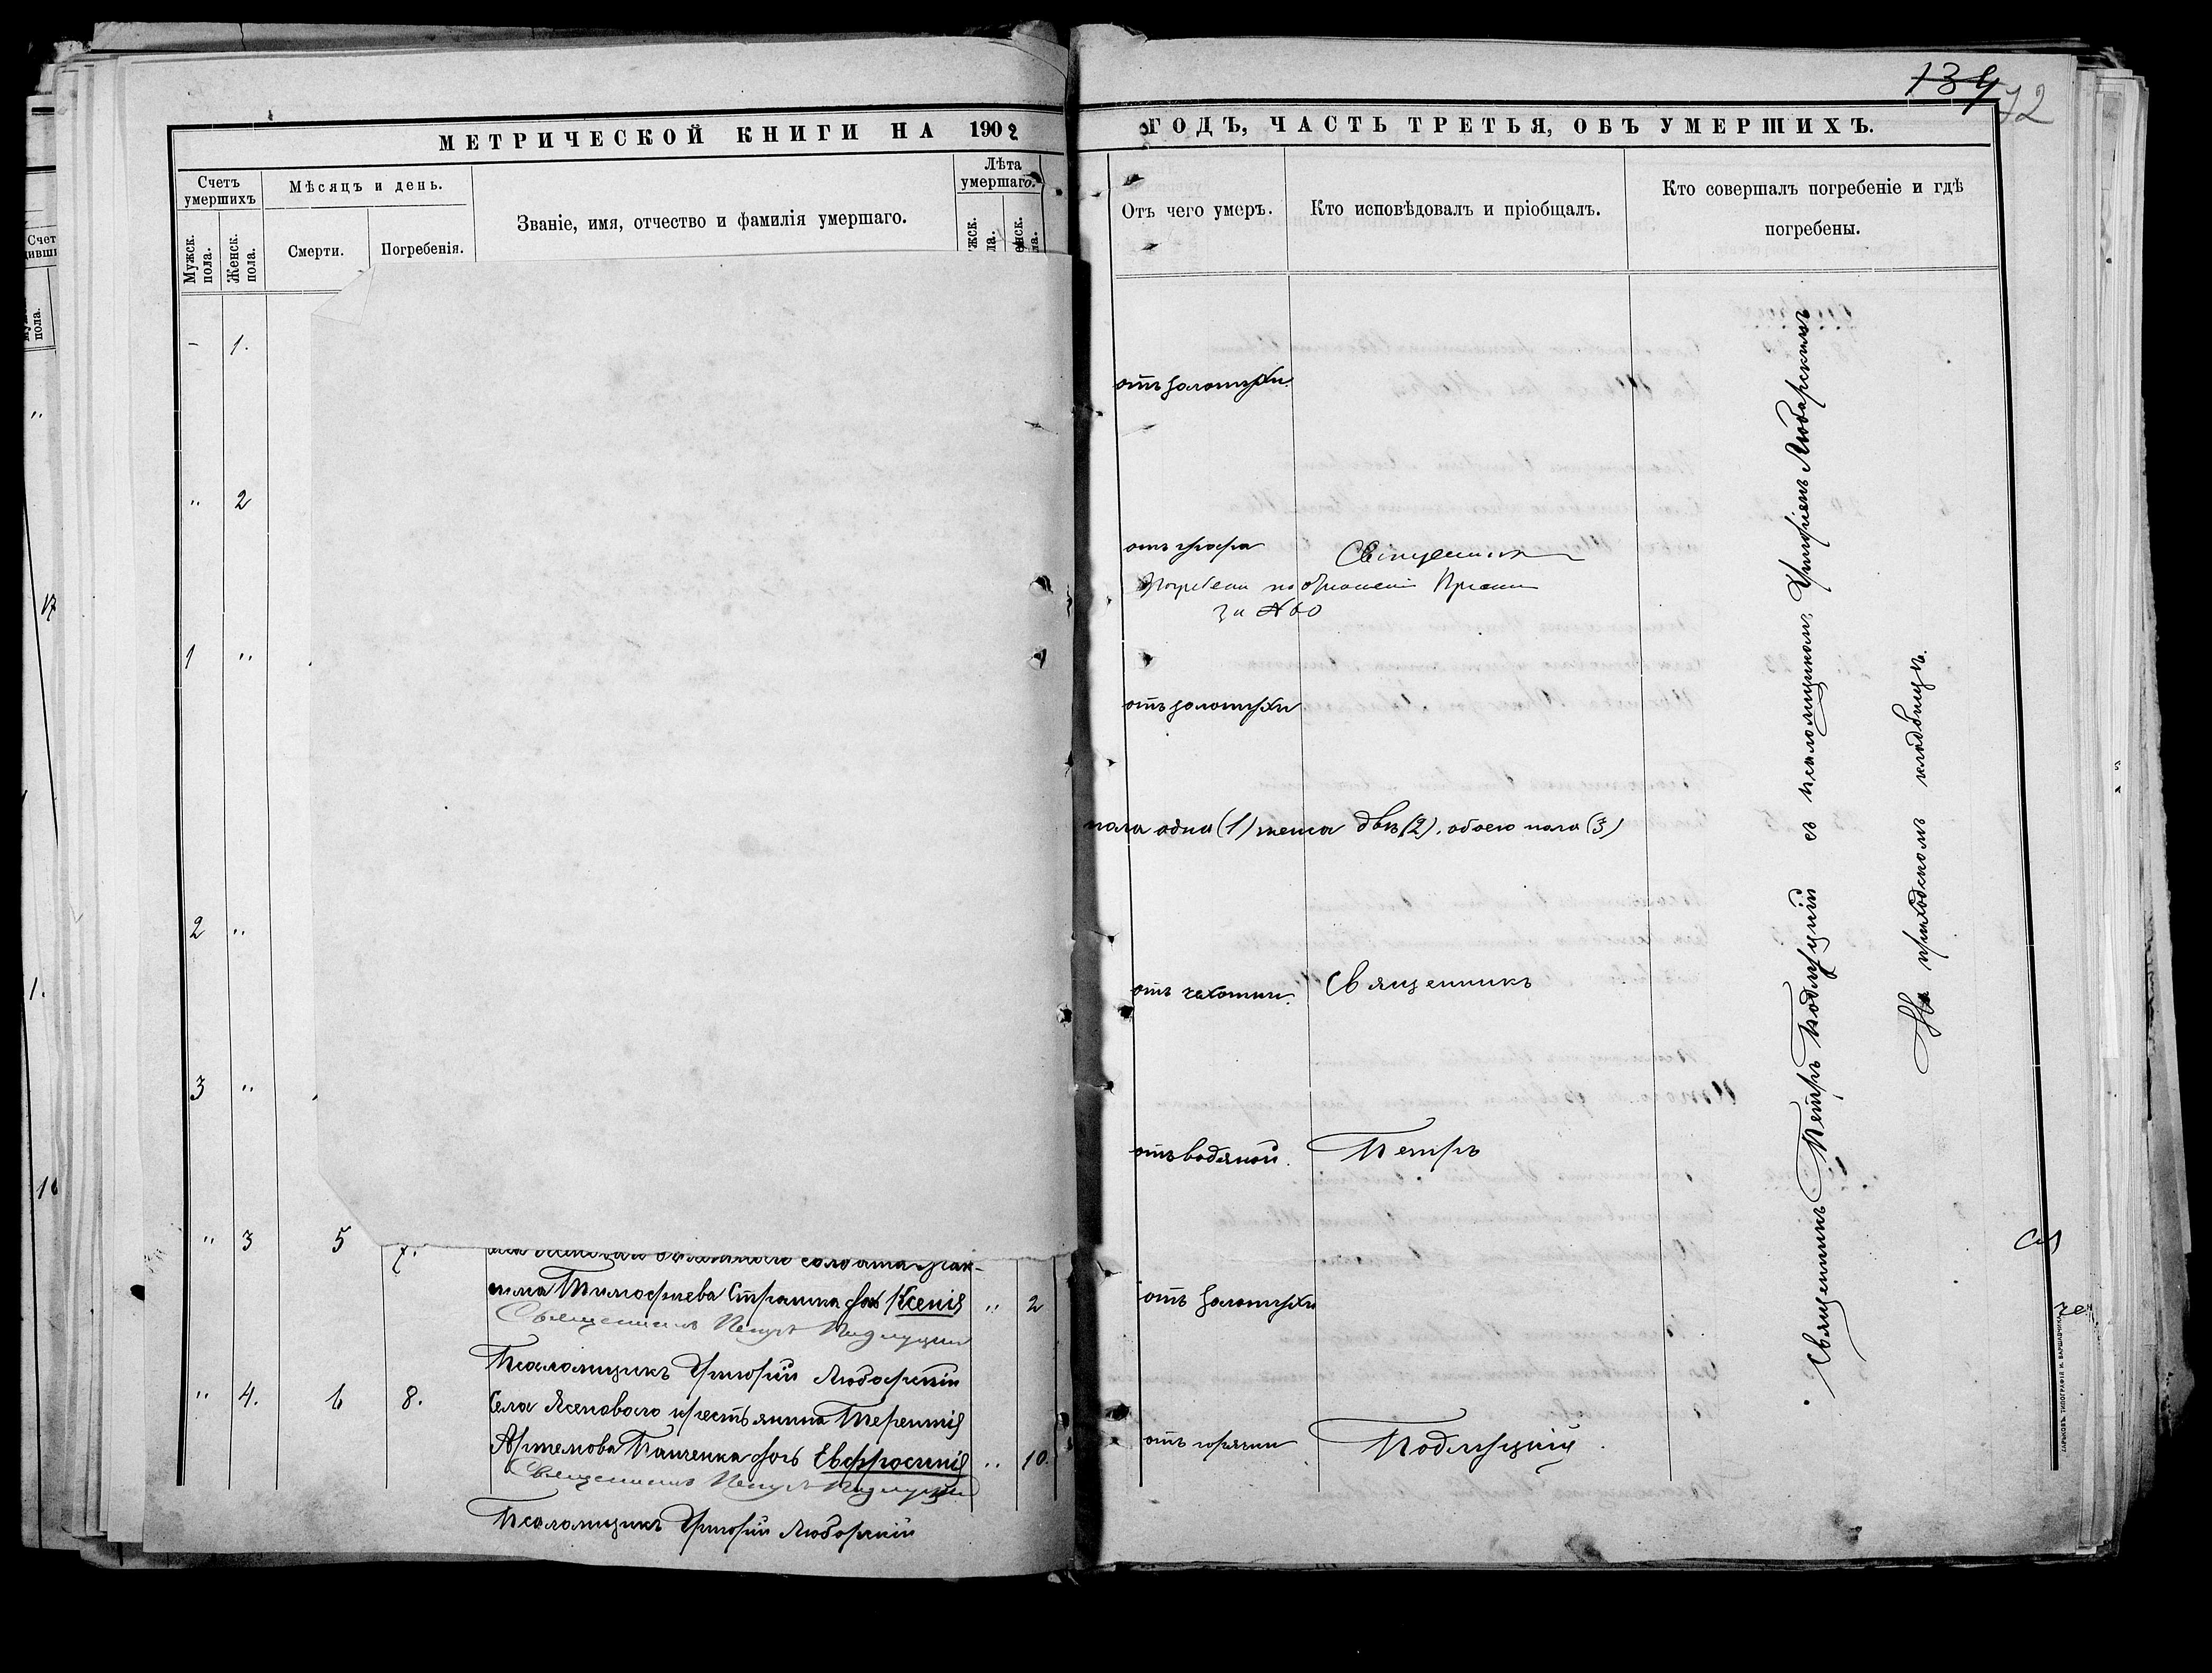 134
92
МЕТРИЧЕСКОЙ КНИГИ НА 1902
ГОДЪ, ЧАСТЬ ТРЕТЬЯ, ОБЪ УМЕРШИХЪ.
Счетъ умершихъ
Мужск. пола.
Женск. пола.
Мѣсяцъ и день.
Смерти.
Погребенія.
Званіе, имя, отчество и фамилія умершаго.
Лѣта умершаго.
Отъ чего умеръ.
Кто исповѣдовалъ и пріобщалъ.
Кто совершалъ погребеніе и гдѣ
погребены.
- 1.
отъ золотухи.
" 2
Священникъ
за № 60
1 "
отъ золотухи
пола одна (1) женска двѣ (2), обоего пола (3)
2 "
отъ чахотки. Священникъ
3 "
отъ водяной. Петръ
" 3 5 7.
Тимофеева Страшка дочь Ксенія " 2
отъ золотухи
Священникъ Петръ Подлуцкій
Псаломщикъ Григорій Любарскій
" 4. 6 8. Села Ясеноваго крестьянина Терентія
Артемова Панченка дочь Евфросинія " 10.
отъ горячки Подлуцкій.
Священникъ Петръ Подлуцкій
Псаломщикъ Григорій Любарскій
Священникъ Петръ Подлуцкій съ псаломщикомъ Григоріемъ Любарскимъ
На приходскомъ кладбищѣ.